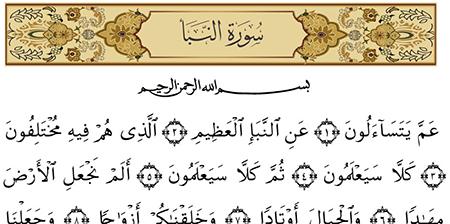 سُورَةُ النَّبَأ
بِسْمِ اللهِ الرَّحْمٰنِ الرَّحِيمِ
عَمَّ يَتَسَآءَلُونَ ﴿١﴾ عَنِ ٱلنَّبَإِ ٱلْعَظِيمِ ﴿٢﴾ ٱلَّذِى هُمْ فِيهِ مُخْتَلِفُونَ
﴿٣﴾ كَلَّا سَيَعْلَمُونَ ﴿٤﴾ ثُمَّ كَلَّا سَيَعْلَمُونَ ﴿٥﴾ أَلَمْ نَجْعَلِ ٱلْأَرْضَ
مِهَٰدًا ﴿٦﴾ وَٱلْجِبَالَ أَوْتَادًا ﴿٧﴾ وَخَلَقْنَٰكُمْ أَزْوَٰجًا ﴿٨﴾ وَجَعَلْنَا